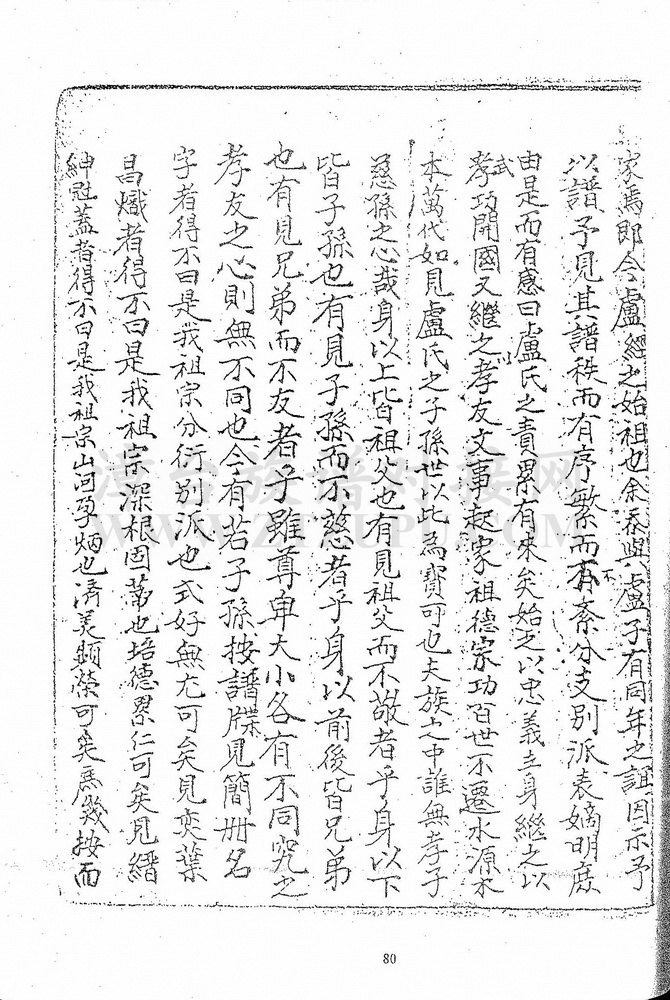 家焉即今盧經之始祖也余忝與盧子有同年之誼因示予
以譜予見其譜秩而有序繁而不紊分支別派表嫡明庶
由是而有感曰盧氏之責累有來矣始之以忠義立身繼之以
孝武功開國又繼之以孝友文事起家祖德家功百世不遷水源木
本萬代如見盧氏之子孫世以此為寶可也夫族之中誰無孝子
慈孫之心哉身以上皆祖父也有見祖父而不敬者乎身以下
皆子孫也有見子孫而不慈者乎身以前後皆兄弟
也有見兄弟而不友者乎雖尊卑大小各有不同究之
孝友之心則無不同也今有若子孫按譜牒見簡冊名
字者得不曰是我祖宗分衍別派也式好無尤可矣見奕葉
昌熾者得不曰是我祖宗深根固蒂也培德累仁可矣見縉
紳冠蓋者得不曰是我祖宗山河孕炳也濟美顯榮可矣焉幾按而
漳台族譜對接網
WWW.ZTZUPU.COM
80